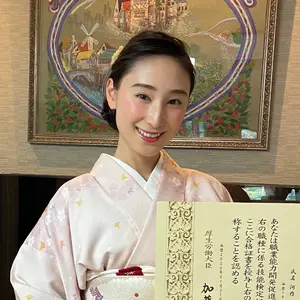 氏名
あなたは職業能力開発促進
右の職種に係る技能検定
ここに合格証書を授与し右の
称することを認める
厚生労働大臣
加藤